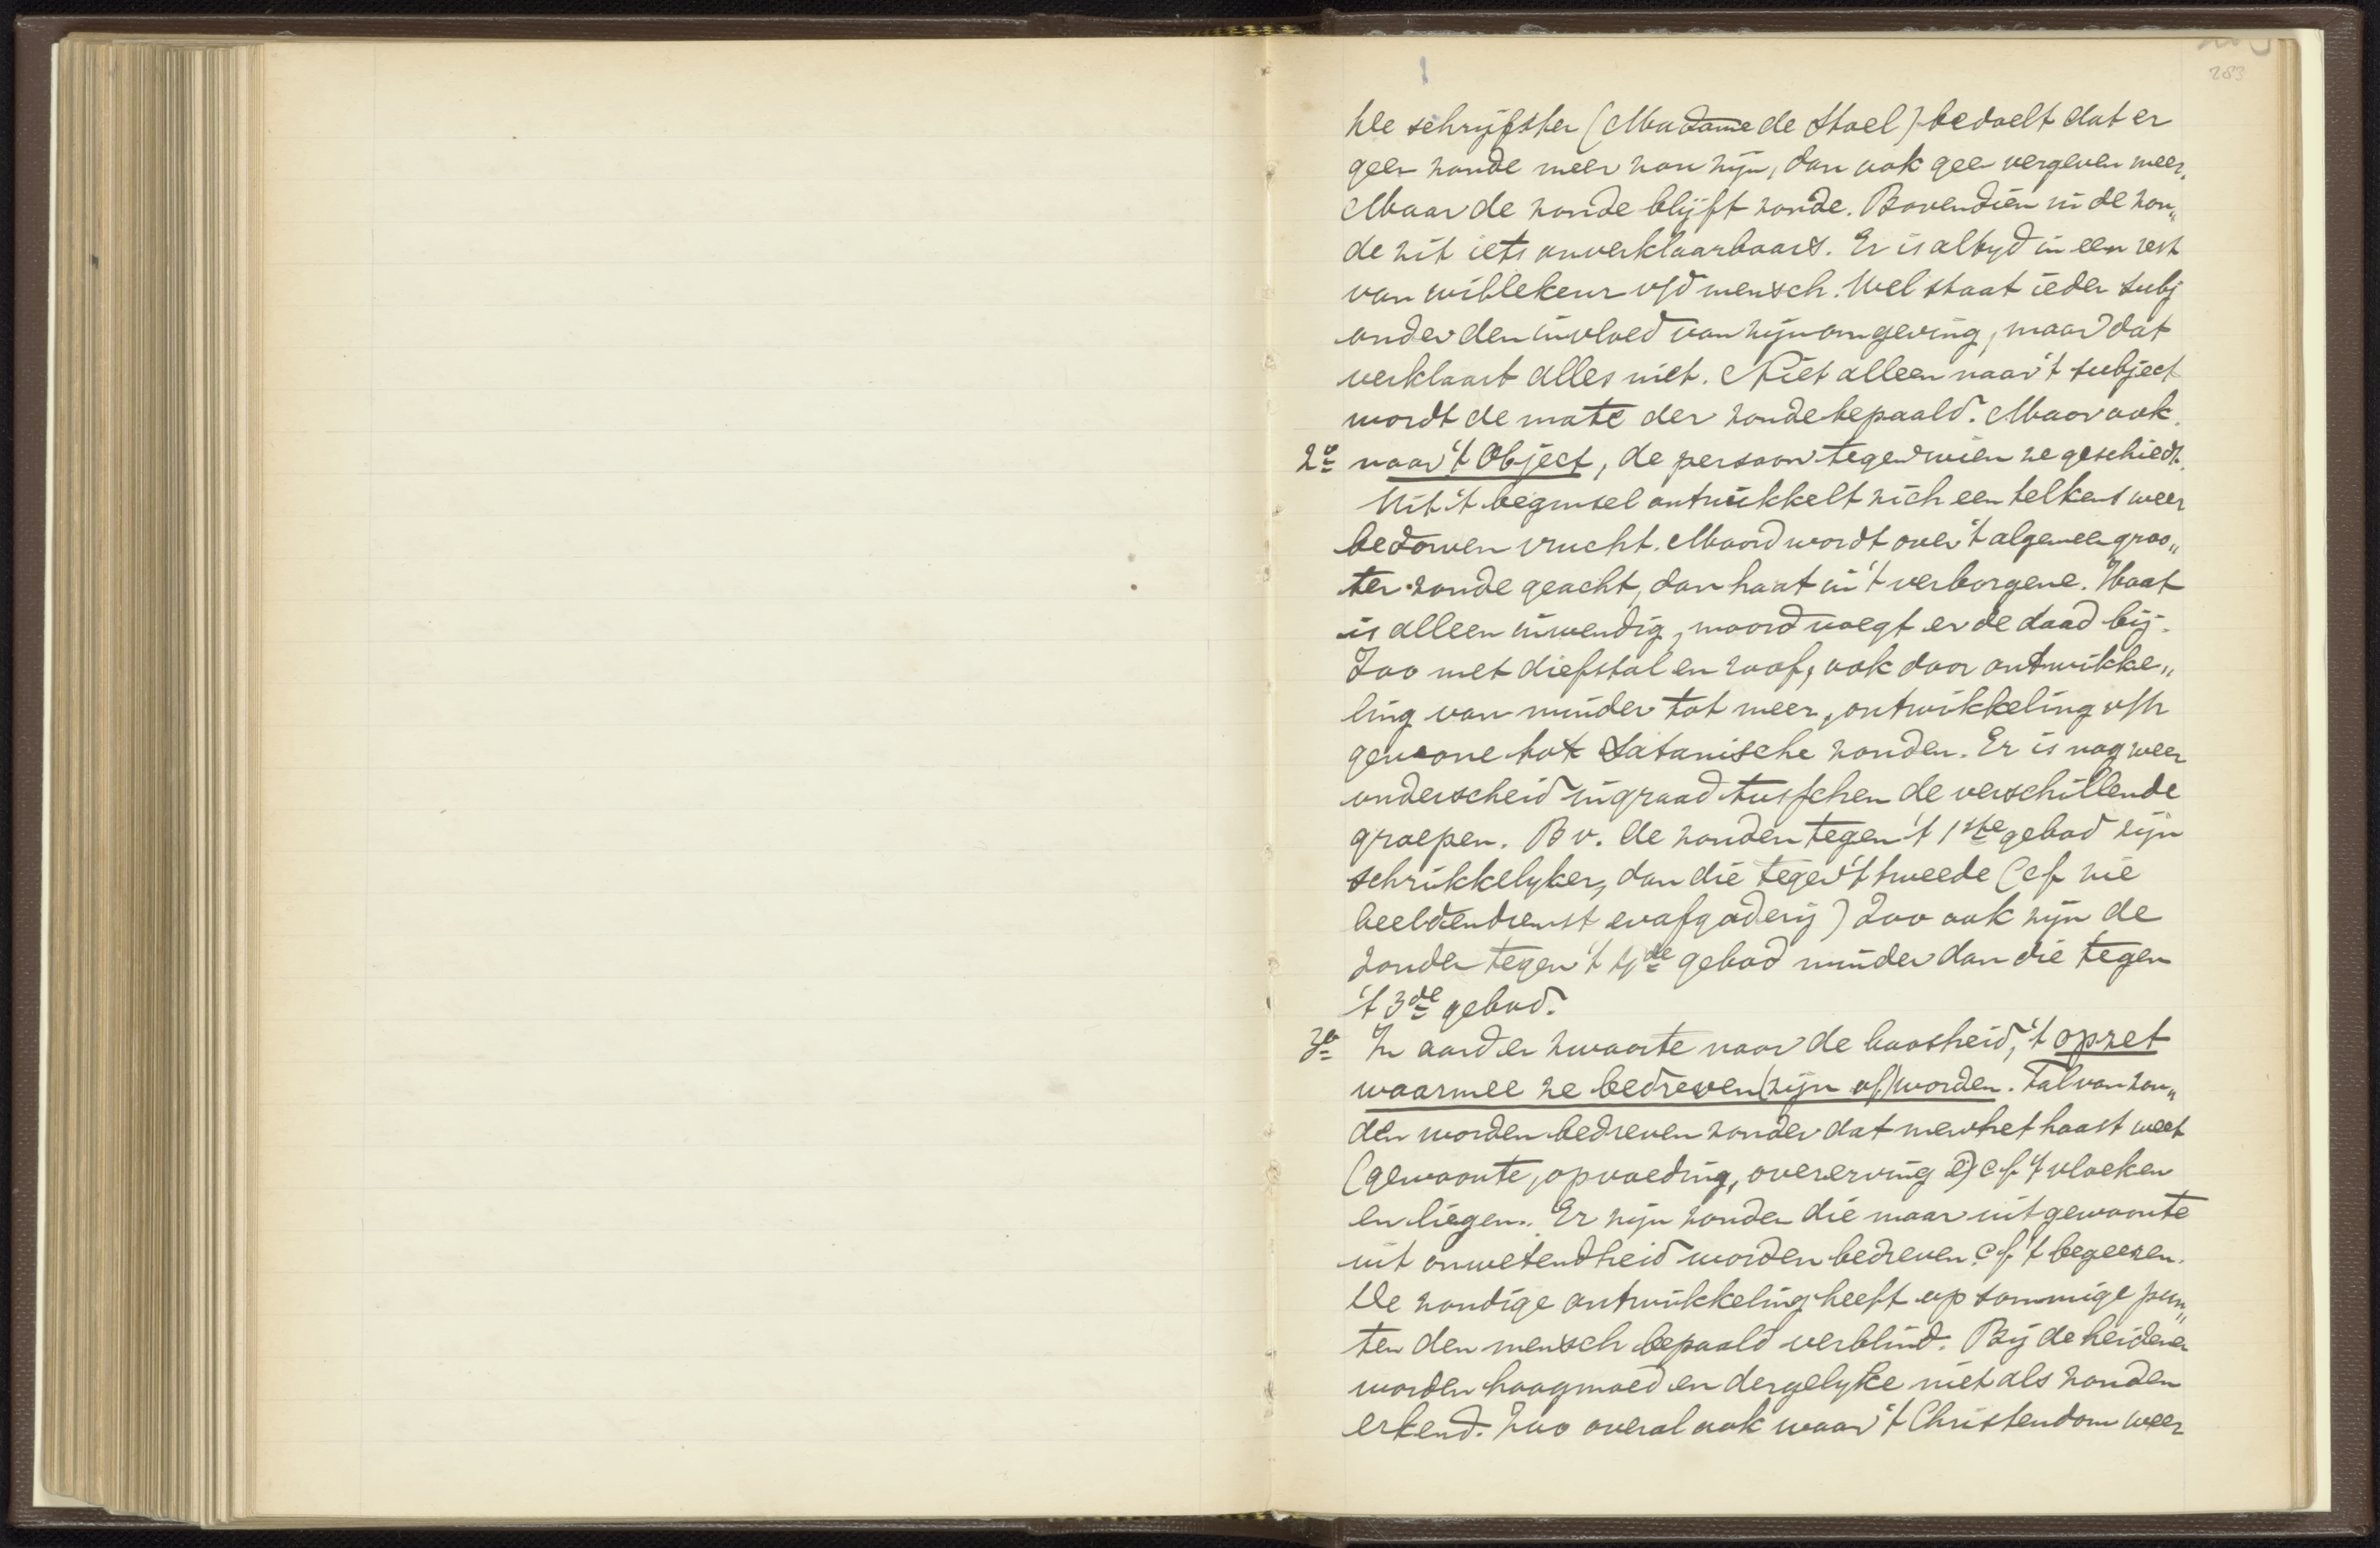 283
De schrijfster (Madame de Stael) bedoelt dat er
geen zonde meer zou zijn, dan ook geen vergeven meer.
Maar de zonde blijft zonde. Bovendien in de zon„
de zit iets onverklaarbaars. Er is altyd in een rest
van willekeur v/d mensch. Wel staat ieder subj
onder den invloed van zijn omgeving, maar dat
verklaart alles niet. Niet alleen naar 't subject
wordt de mate der zonde bepaald. Maar ook
2º naar 't Object, de persoon tegen wien ze geschiedt.
Uit 't beginsel ontwikkelt zich een telkens weer
bedorven vrucht. Moord wordt over 't algemeen groo„
ter zonde geacht, dan haat in 't verborgene. Haat
is alleen inwendig, moord voegt er de daad bij.
Zoo met diefstal en roof, ook door ontwikke„
ling van minder tot meer, ontwikkeling v/h
gewone tot Satanische zonden. Er is nog weer
onderscheid in graad tusschen de verschillende
groepen. Bv. de zonden tegen 't 1ste gebod zijn
schrikkelyker, dan die tegen 't tweede (cf zie
beeldendienst en afgoderij) Zoo ook zijn de
zonden tegen 't 4de gebod minder dan die tegen
't 3de gebod.
3º In aard en zwaarte naar de boosheid, 't opzet
waarmee ze bedreven (zijn of) worden. Tal van zon„
den worden bedreven zonder dat men het haast weet
(gewoonte, opvoeding, overerving) cf 't vloeken
en liegen. Er zijn zonden die maar uit gewoonte
uit onwetendheid worden bedreven cf 't begeeren.
De zondige ontwikkeling heeft op sommige pun„
ten den mensch bepaald verblind. Bij de heidenen
worden hoogmoed en dergelyke niet als zonden
erkend. Zoo overal ook waar 't Christendom weer